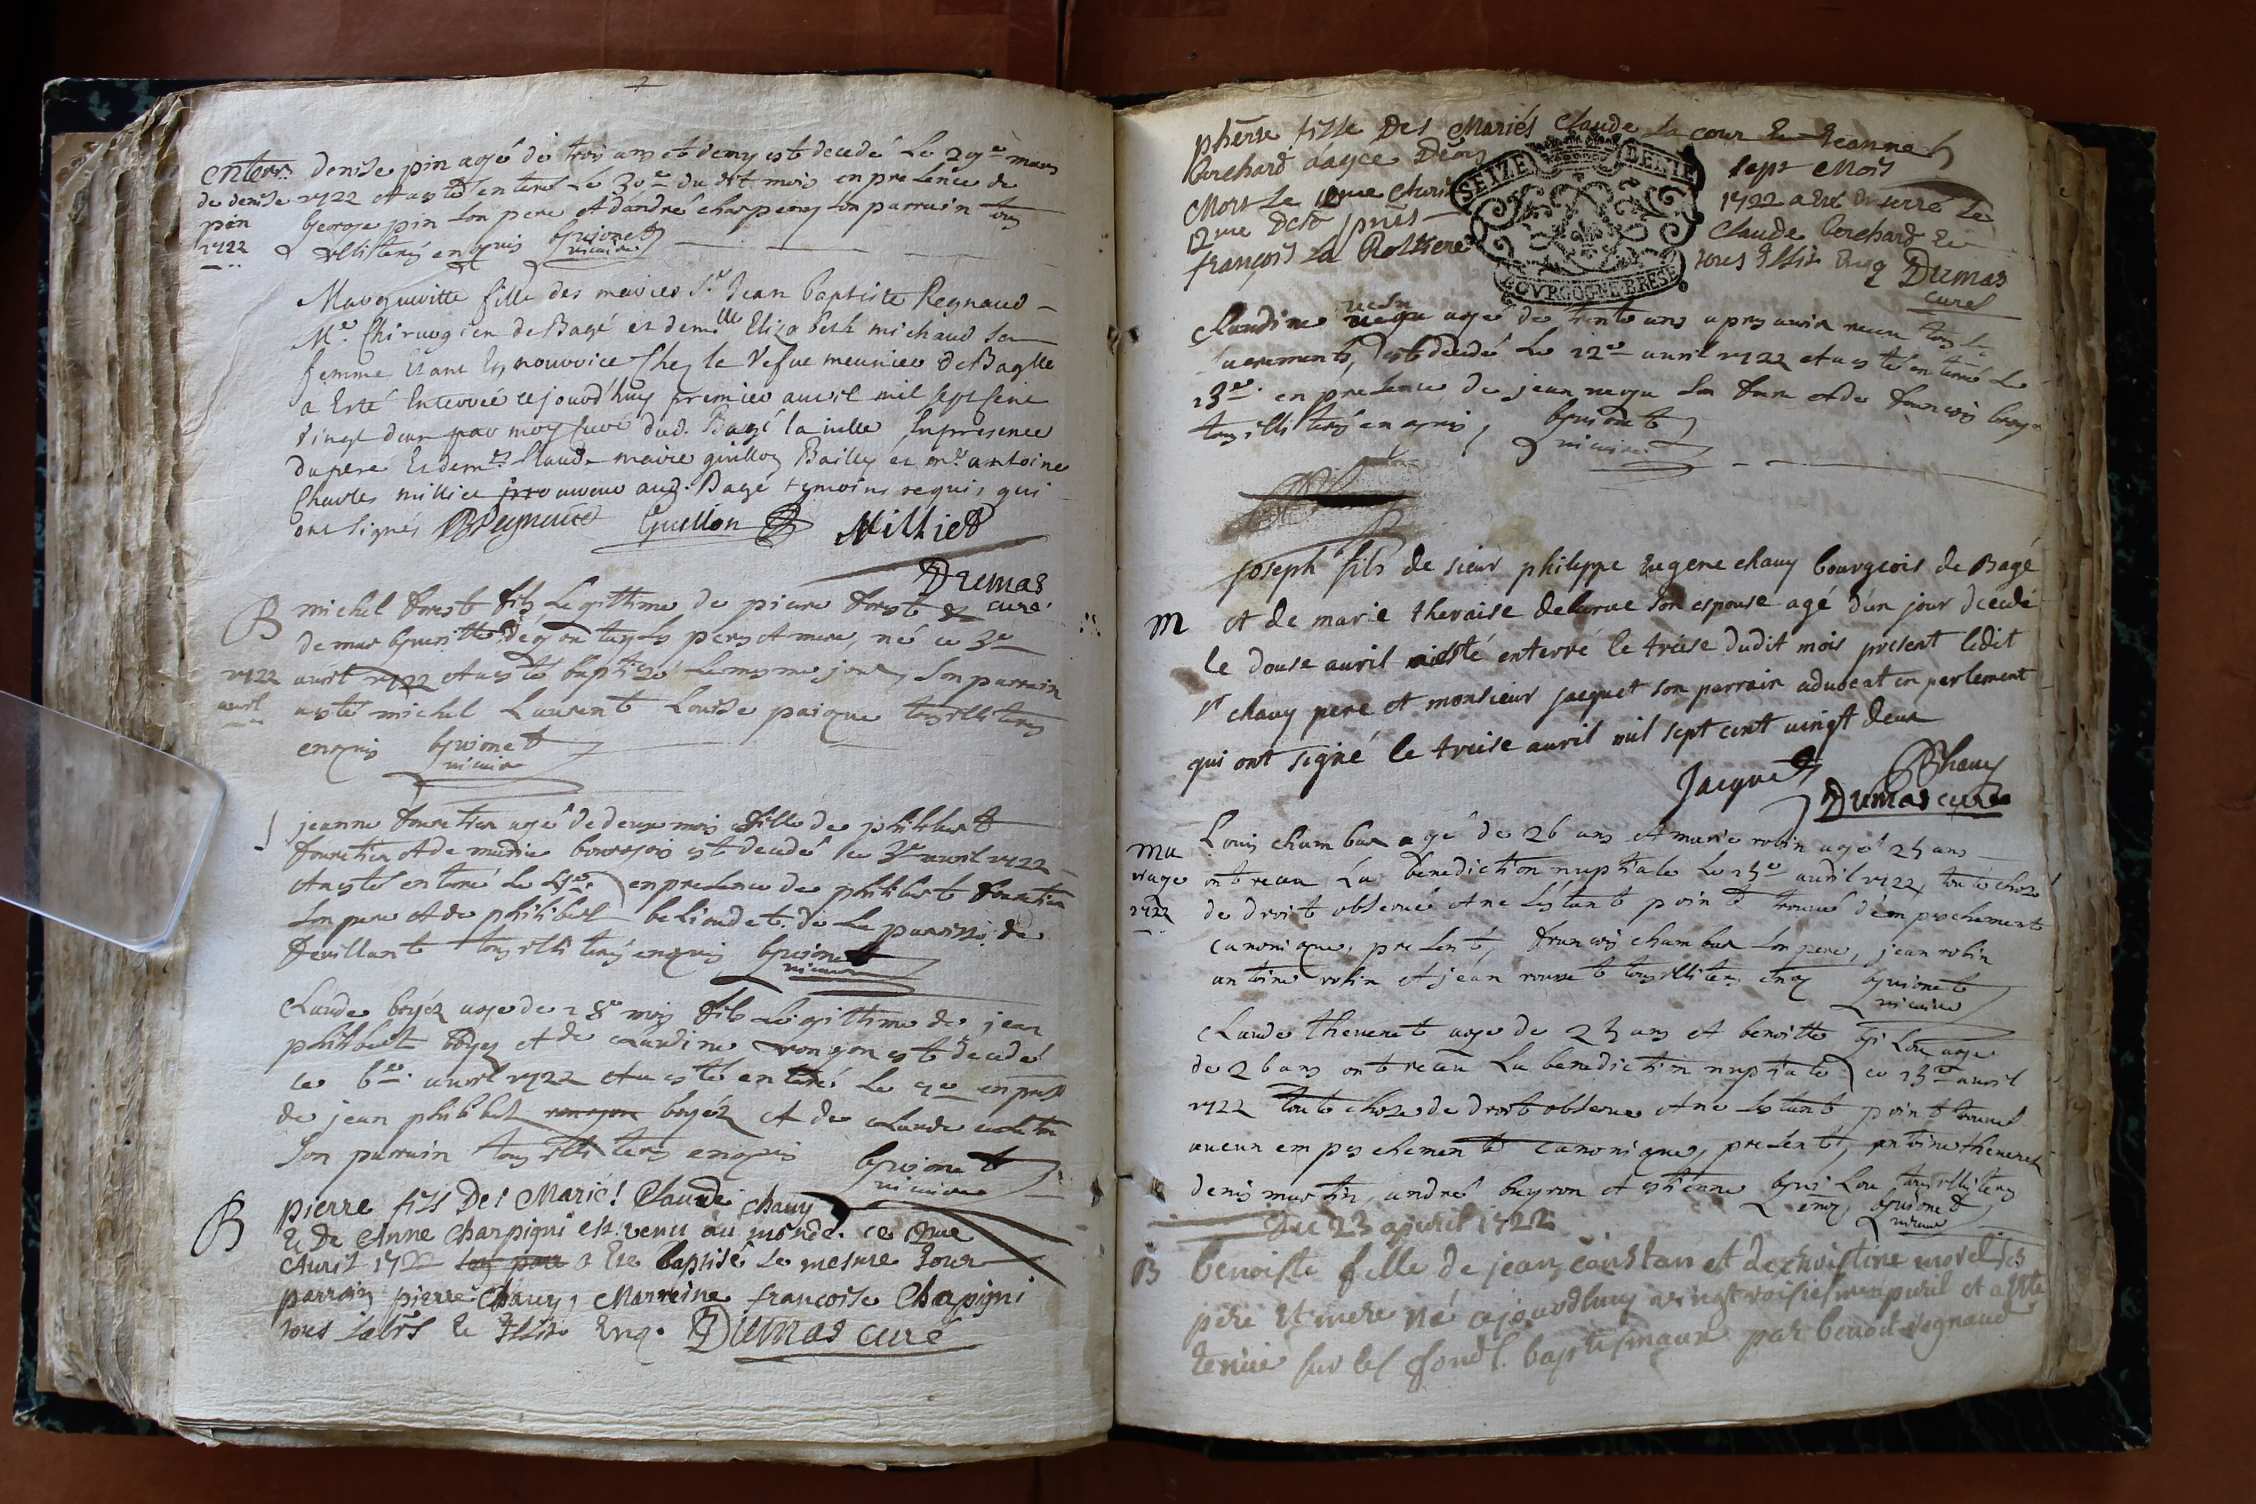 enterr. denise pin agé de trois ans et demy est decedé le 29e mars
de denise 1722 et a esté enterré le 30e du dit mois en presence de
pin george pin son pere et d'andré charpeny son parrain tous
1722 illisterés enquis guionet
vicaire
Margueritte fille des maries Sr Jean baptiste Regnaud
Me Chirurgien de Bagé et demlle Elizabeth michaud sa
femme etant en nourrice Chez la Vefue meunier de Bagé
a Esté Enterrée ce jourd'huy premier auril mil sept cent
vingt deux par moy Curé dud. Bagé la ville En presence
du pere et de mr Claude marie guillon Bailly et mr antoine
Charles milliet procureur aud. Bagé temoins requis qui
ont signés Regnaud Guillon Milliet
Dumas
curé
B michel forest fils Legittime de pierre forest et
de margueritte ses pere et mere, né ce 3e
1722 auril 1722 et a esté baptizé le mesme jour, son parrain
auril a esté michel Laurent Louise paique tous illisterés
enquis guionet
vicaire
jeanne agé de deux mois fille de philibert
et de marie bourgois est decedé ce 3e auril 1722
et a esté enterré le 4e en presence de philibert
son pere et de philibert de la paroisse de
feuillant tous illisterés enquis guionet
vicaire
Claude boyer age de 18e mois fils Legittime de jean
philibert boyer et de claudine rongon est decedé
ce 6e auril 1722 et a esté enterré le 7e en pres
de jean philibert rongon boyer et de claude
son parrain tous illisterés enquis guionet
vicaire
B pierre fils Des Mariés Claude chauy
Et De Anne Charpigni est venu au monde ce
Auril 1722 son pere a Ete baptisé le mesme Jour
parrain pierre Chauy, Marreine francoise Chapigni
tous Illitr Enq. Dumas curé
fille Des Mariés Claude la cour Et Jeanne
Corchard d'agée Denv sept Mois
Mort le 1722 a Ete Enterré le
Claude Corchard Et
françois La tous Illit Enq Dumas
curé
SEIZE DEN IE
BOVRGOGNE BRESSE
Claudine agé de trente ans apres auoir receu tous les
sacrements, est decedé le 12e auril 1722 et a esté enterré le
13e en presence de jean son frere et de francois
tous illisterés enquis, guionet
vicaire
joseph fils de sieur philippe eugene chauy bourgeois de Bagé
M et de marie theraise delorue son espouse agé d'un jour decedé
le douse auril a esté enterré le treise dudit mois present ledit
sr chauy pere et monsieur jacquet son parrain aduocat en parlement
qui ont signé le treise auril mil sept cent uingt deux
Jacquet Chauy
Dumas curé
ma Louis chambar agé de 26 ans et marie robin agé 25 ans
riage ont receu La benediction nuptiale le 13e auril 1722, toute chose
1722 de droit obserué et ne s'estant point trouué d'empeschement
canonique, presents, francois chambar son pere, jean robin
antoine robin et jean tous illister enq guionet
vicaire
Claude theuenet age de 25 ans et benoitte guilon age
de 26 ans ont receu La benediction nuptiale ce 13e auril
1722 toute chose de droit obserue et ne s'estant point trouué
aucun empeschement canonique, presents, antoine theuenet
denis martin, andré beyron et estienne guilon tous illisterés
enq guionet
vicaire
Du 23 apuril 1722
B benoiste fille de jean constan et de christine morel ses
pere et mere né ajourdhuy vingt troisiesme apuril et a Esté
tenue sur les fonds baptismaux par benoit regnaud